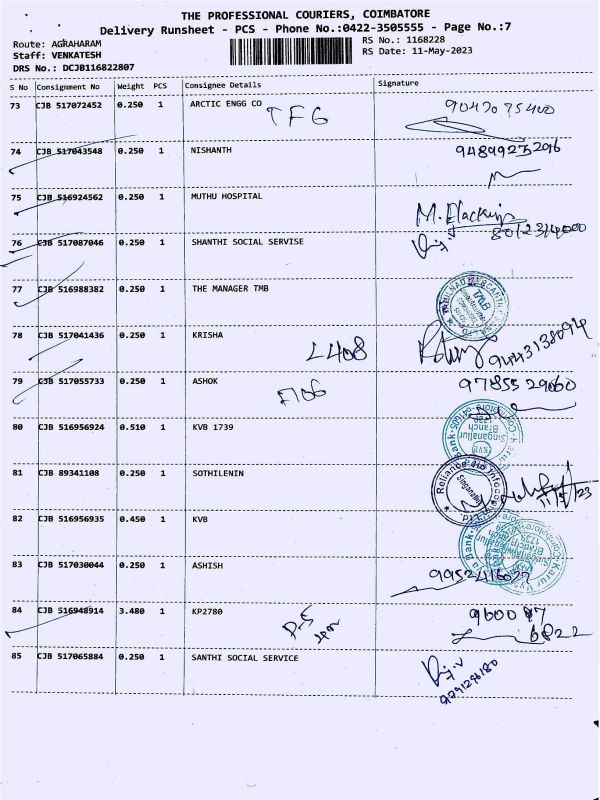 THE PROFESSIONAL COURIERS, COIMBATORE
Delivery Runsheet - PCS - Phone No.:0422-3505555 - Page No.:7
Route: AGRAHARAM
Staff: VENKATESH
DRS No.: DCJB116822807
RS No.: 1168228
RS Date: 11-May-2023
S No Consignment No Weight PCS Consignee Details Signature
73 CJB 517072452 0.250 1 ARCTIC ENGG CO TFG
74 CJB 517043548 0.250 1 NISHANTH 9489925296
75 CJB 516924562 0.250 1 MUTHU HOSPITAL
76 CJB 517087046 0.250 1 SHANTHI SOCIAL SERVISE
77 CJB 516988382 0.250 1 THE MANAGER TMB
TMB
78 CJB 517041436 0.250 1 KRISHA L408 9443138094
79 CJB 517055733 0.250 1 ASHOK F106 9785529060
80 CJB 516956924 0.510 1 KVB 1739
Singanallur
Branch
KVB
81 CJB 89341108 0.250 1 SOTHILENIN
11/5/23
82 CJB 516956935 0.450 1 KVB
83 CJB 517030044 0.250 1 ASHISH
84 CJB 516948914 3.480 1 KP2780
6822
85 CJB 517065884 0.250 1 SANTHI SOCIAL SERVICE